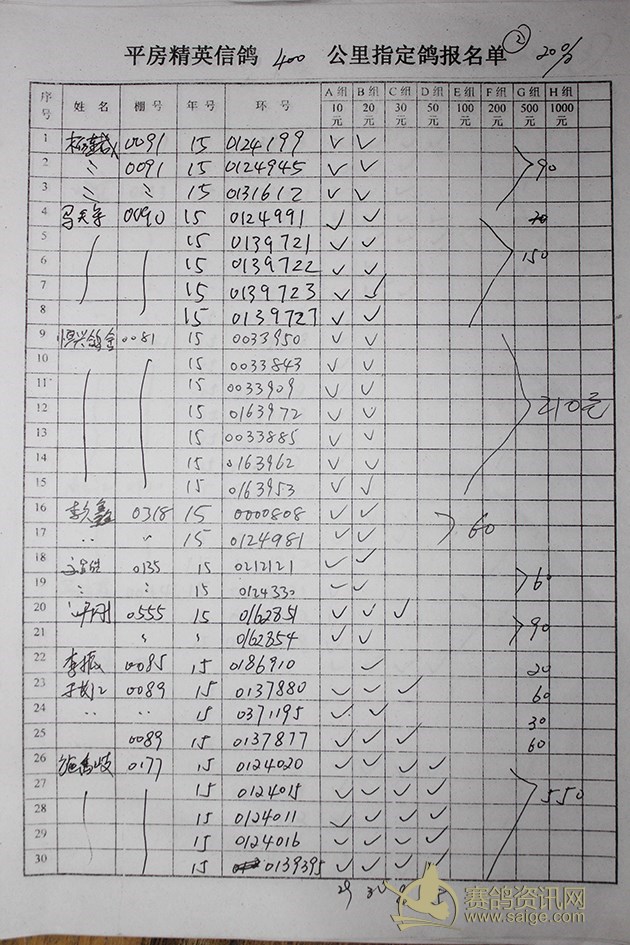 平房精英信鸽 400 公里指定鸽报名单 ②
序号 姓名 棚号 年号 环号 A组 10元 B组 20元 C组 30元 D组 50元 E组 100元 F组 200元 G组 500元 H组 1000元
1 0091 15 0124199 ✓ ✓
2 〃 0091 15 0124945 ✓ ✓ 90
3 〃 〃 15 0131612 ✓ ✓
4 0090 15 0124991 ✓ ✓
5 15 0139721 ✓ ✓
6 15 0139722 ✓ ✓ 150
7 15 0139723 ✓ ✓
8 15 0139727 ✓ ✓
9 0081 15 0033950 ✓ ✓
10 15 0033843 ✓ ✓
11 15 0033909 ✓ ✓
12 15 0163972 ✓ ✓ 210元
13 15 0033885 ✓ ✓
14 15 0163962 ✓ ✓
15 15 0163953 ✓ ✓
16 0318 15 0000808 ✓ ✓
17 〃 〃 15 0124981 ✓ ✓ 60
18 0135 15 0212121 ✓ ✓
19 〃 〃 15 0124330 ✓ ✓ 60
20 0555 15 0162851 ✓ ✓ ✓
21 〃 〃 0162854 ✓ ✓ 90
22 李振 0085 15 0186910 ✓ 20
23 0089 15 0137880 ✓ ✓ ✓ 60
24 〃 〃 15 0371195 ✓ ✓ 30
25 0089 15 0137877 ✓ ✓ ✓ 60
26 0177 15 0124020 ✓ ✓ ✓ ✓
27 15 0124015 ✓ ✓ ✓ ✓ 550
28 15 0124011 ✓ ✓ ✓ ✓
29 15 0124016 ✓ ✓ ✓ ✓
30 15 0139395 ✓ ✓ ✓ ✓
29
赛鸽资讯网
www.saige.com